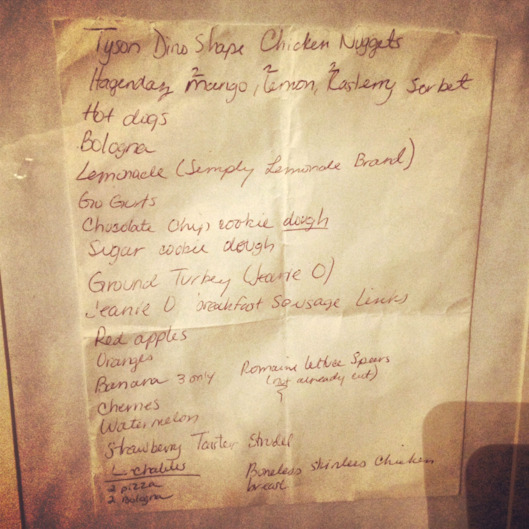 Tyson Dino Shape Chicken Nuggets
Hagendaz 2 mango, 2 Lemon, 2 Rasberry Sorbet
Hot dogs
Bologna
Lemonade (Simply Lemonade Brand)
Go Gurts
Chocolate Chip cookie dough
Sugar cookie dough
Ground Turkey (Jeanie O)
Jeanie O breakfast Sausage Links
Red apples
Oranges
Banana 3 only
Romaine lettuce Spears
(not already cut)
Cherries
Watermelon
Strawberry Toaster Strudel
Boneless skinless chicken
breast
2 pizza
2 Bologna